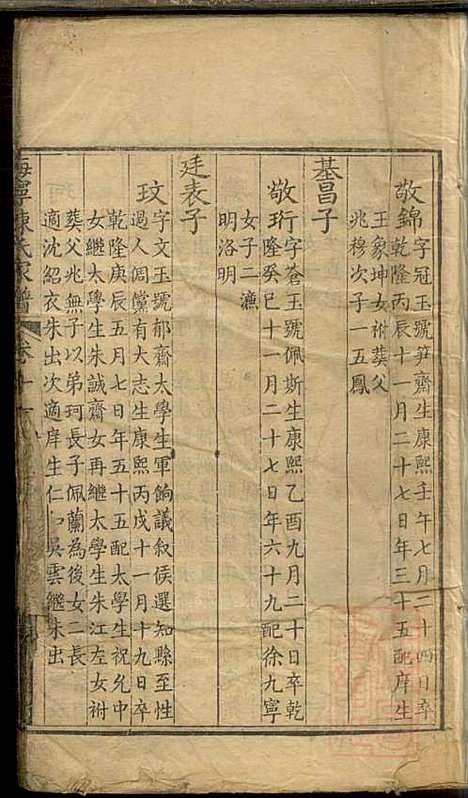 敬錦字冠玉號笋齋生康熙壬午七月二十四日卒
乾隆丙辰十一月二十七日年三十五配庠生
王象坤女祔葬父
兆穆次子一五鳳
基昌子
敬珩字蒼玉號佩斯生康熙乙酉九月二十日卒乾
隆癸巳十一月二十七日年六十九配徐九寧
女子二濂
明洛明
廷表子
玟字文玉號郁齋太學生軍餉議敘候選知縣至性
過人倜儻有大志生康熙丙戌十一月十九日卒
乾隆庚辰五月七日年五十五配太學生祝允中
女繼太學生朱誠齋女再繼太學生朱江左女祔
葬父兆無子以弟珂長子佩蘭為後女二長
適沈紹衣朱出次適庠生仁和吳雲繼朱出
海寧陳氏家譜 卷十